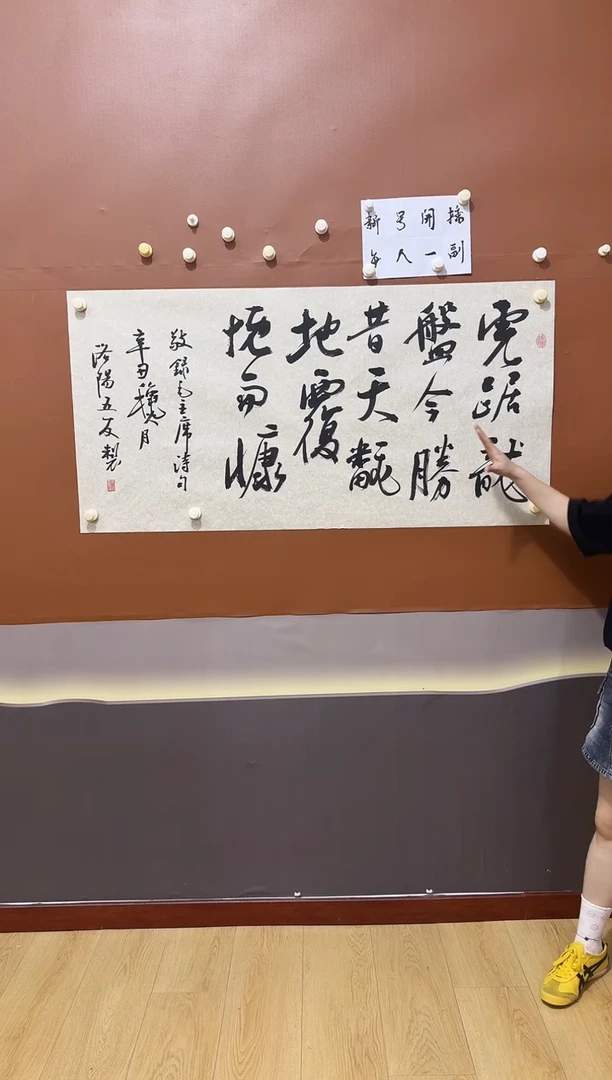 新号開播
每人一副
虎踞龍
盤今勝
昔天翻
地覆
慨而慷
敬録毛主席詩句
辛丑穐月
洛陽五友製